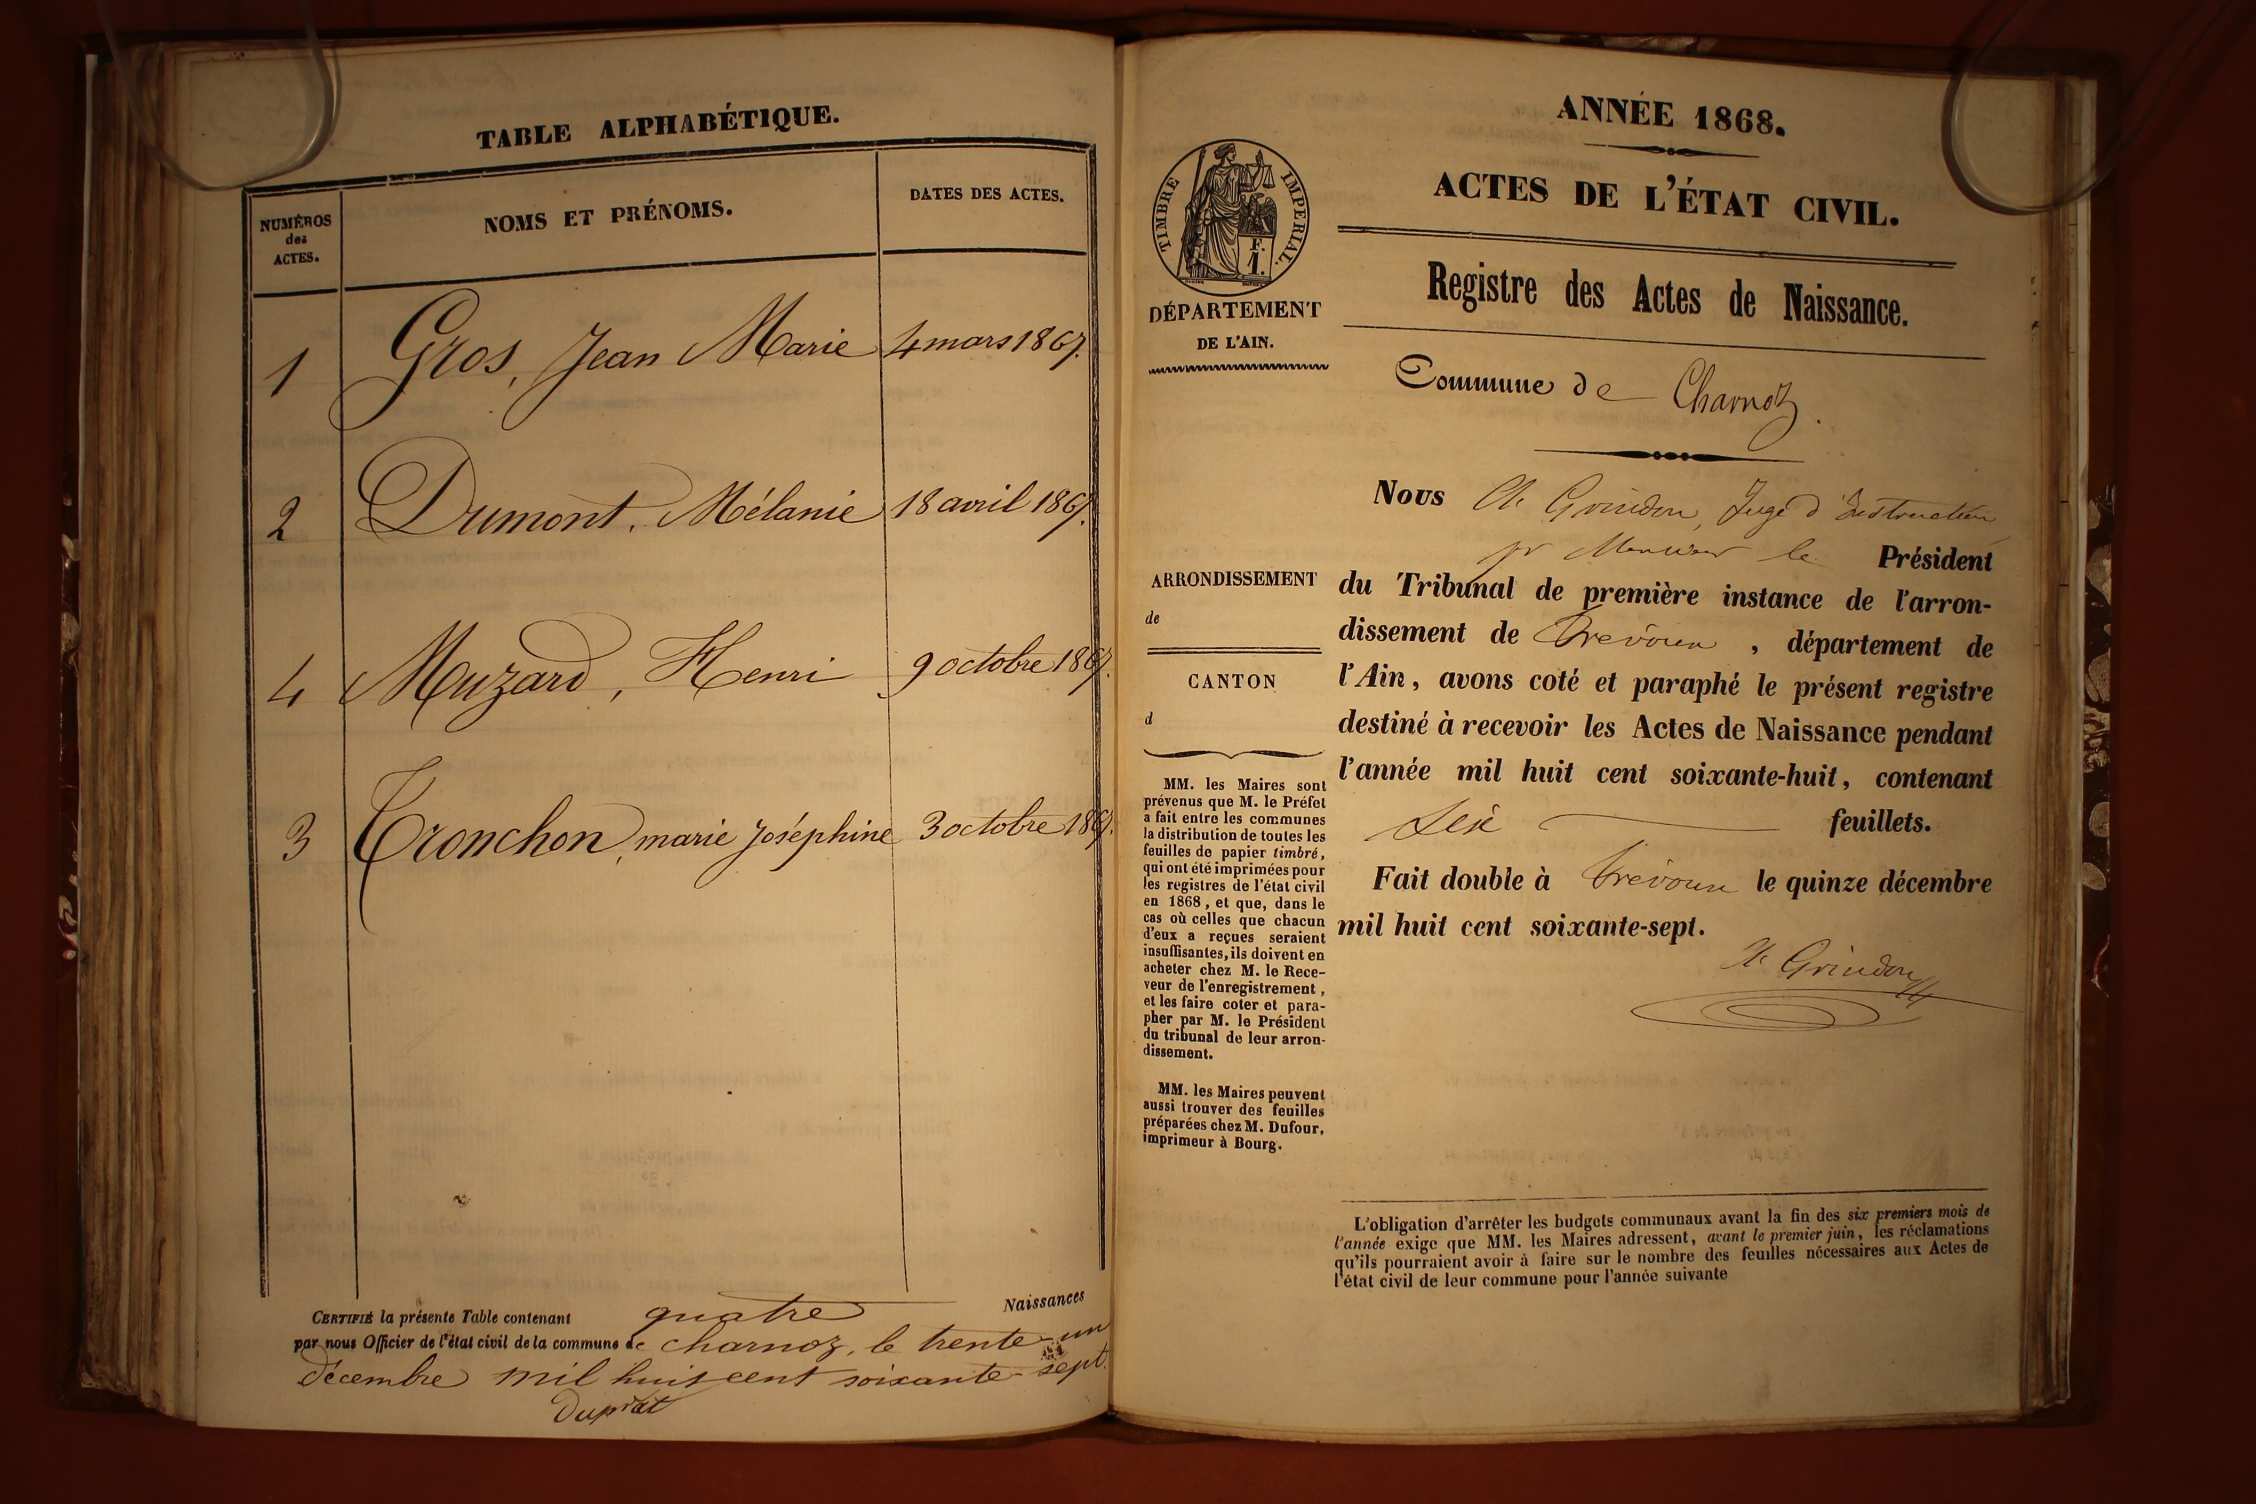 TABLE ALPHABÉTIQUE.
NUMÉROS
des
ACTES.
NOMS ET PRÉNOMS.
DATES DES ACTES.
1 Gros, Jean Marie 4 mars 1867.
2 Dumont, Mélanie 18 avril 1867.
4 Muzard, Henri 9 octobre 1867.
3 Tronchon, marie Joséphine 3 octobre 1867.
CERTIFIÉ la présente Table contenant quatre Naissances
par nous Officier de l'état civil de la commune de Charnoz, le trente-un
décembre mil huit cent soixante-sept.
Duprat
ANNÉE 1868.
ACTES DE L'ÉTAT CIVIL.
Registre des Actes de Naissance.
TIMBRE IMPERIAL.
F.
1.
DÉPARTEMENT
DE L'AIN.
Commune de Charnoz.
Nous Grindon, Juge d'Instruction
pr Monsieur le Président
du Tribunal de première instance de l'arron-
dissement de Trévoux, département de
l'Ain, avons coté et paraphé le présent registre
destiné à recevoir les Actes de Naissance pendant
l'année mil huit cent soixante-huit, contenant
six feuillets.
Fait double à Trévoux le quinze décembre
mil huit cent soixante-sept.
Grindon
ARRONDISSEMENT
de
CANTON
d
MM. les Maires sont
prévenus que M. le Préfet
a fait entre les communes
la distribution de toutes les
feuilles de papier timbré,
qui ont été imprimées pour
les registres de l'état civil
en 1868, et que, dans le
cas où celles que chacun
d'eux a reçues seraient
insuffisantes, ils doivent en
acheter chez M. le Rece-
veur de l'enregistrement,
et les faire coter et para-
pher par M. le Président
du tribunal de leur arron-
dissement.
MM. les Maires peuvent
aussi trouver des feuilles
préparées chez M. Dufour,
imprimeur à Bourg.
L'obligation d'arrêter les budgets communaux avant la fin des six premiers mois de
l'année exige que MM. les Maires adressent, avant le premier juin, les réclamations
qu'ils pourraient avoir à faire sur le nombre des feuilles nécessaires aux Actes de
l'état civil de leur commune pour l'année suivante